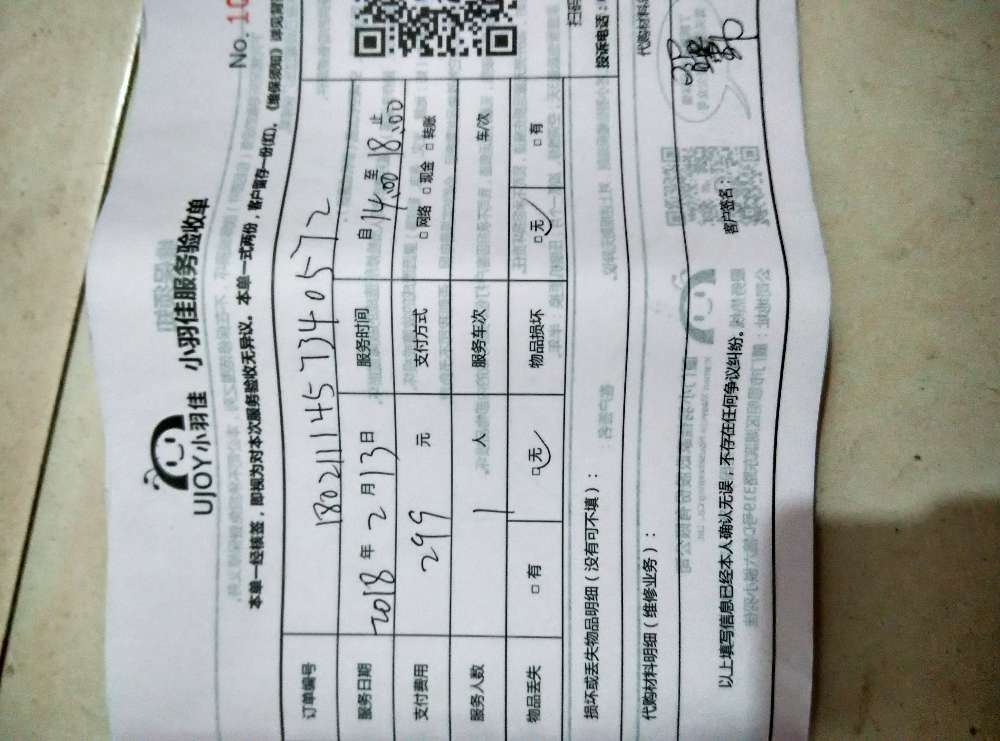 No. 10
UJOY小羽佳 小羽佳服务验收单
本单一经核签，即视为对本次服务验收无异议。本单一式两份，客户留存一份(红)。《维保须知》
订单编号 180211145734057 2
服务日期 2018 年 2 月 13 日 服务时间 自 14:00 至 18:00 止
支付费用 299 元 支付方式 □ 网络 □ 现金 □ 转账
服务人数 1 人 服务车次 车/次
物品丢失 □ 有 □ 无 物品损坏 □ 无 □ 有
损坏或丢失物品明细（没有可不填）：
扫码
投诉电话：
代购材料明细（维修业务）：
代购材料
以上填写信息已经本人确认无误，不存在任何争议纠纷。 客户签名：